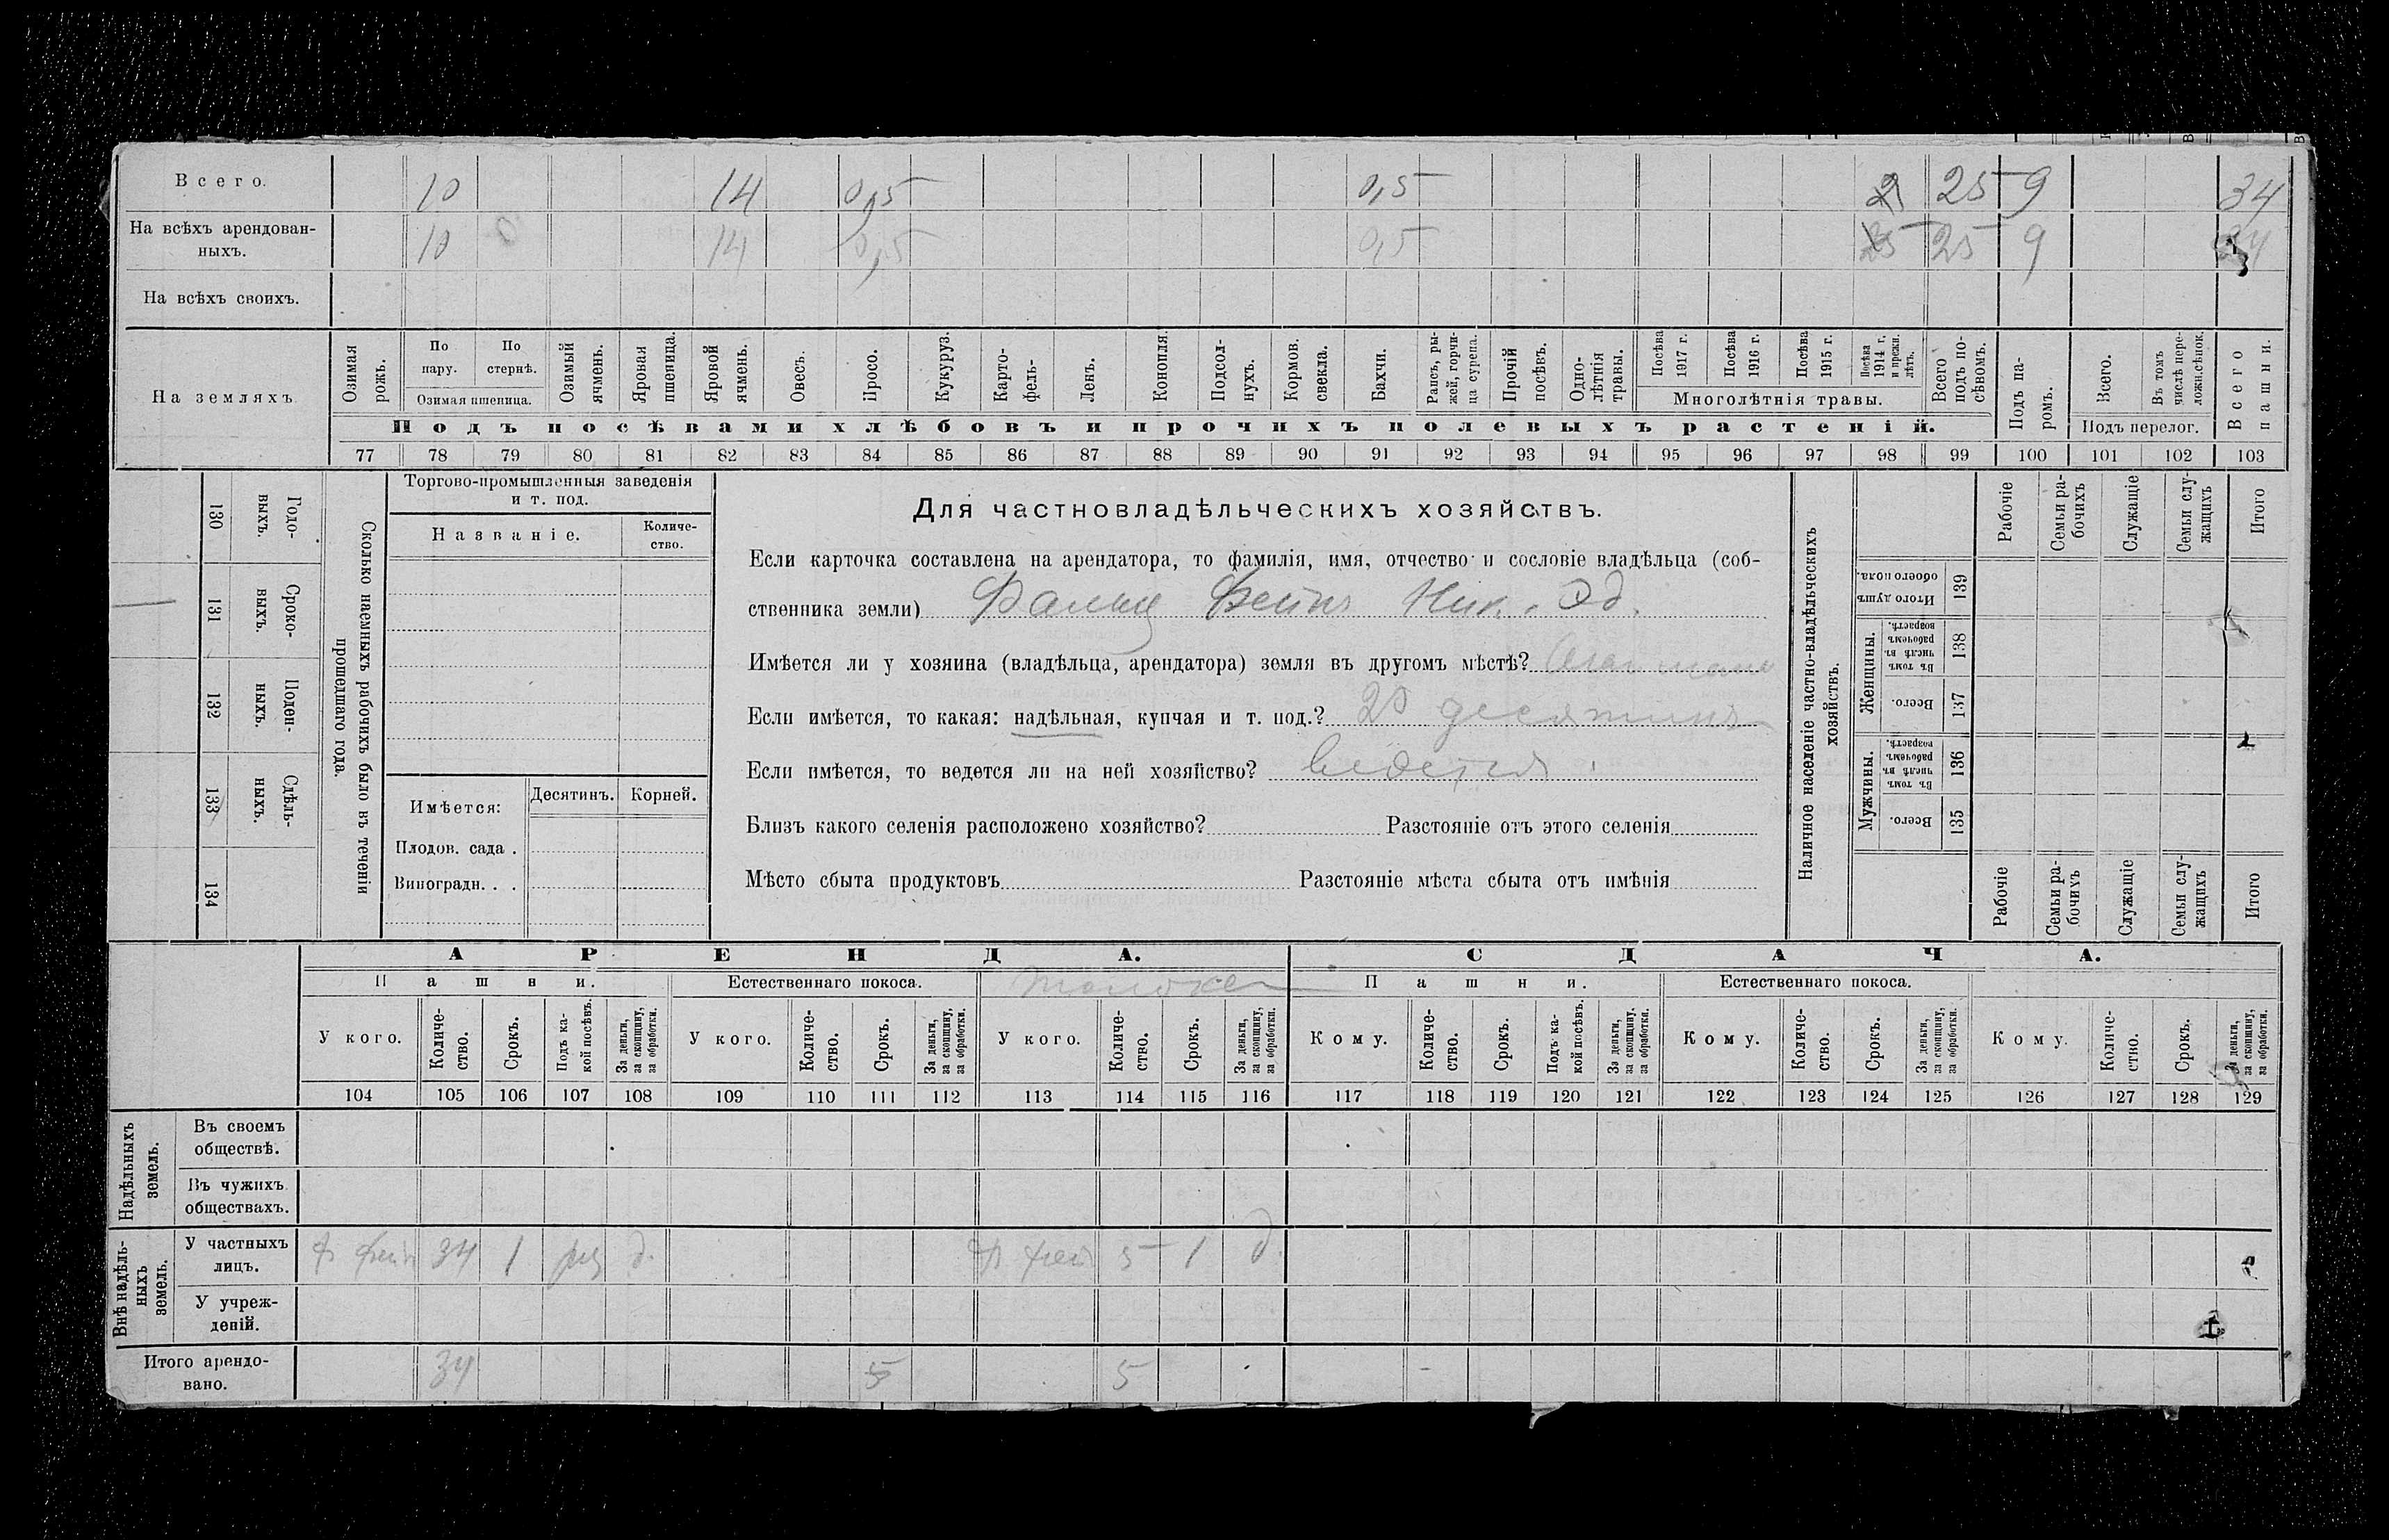 Всего. 10 14 0,5 0,5 25 9 34
На всѣхъ арендован-
ныхъ. 10 14 0,5 0,5 25 9
На всѣхъ своихъ.
На земляхъ
Озимая рожь.
По пару.
По стернѣ.
Озимая пшеница.
Озимый ячмень.
Яровая пшеница.
Яровой ячмень.
Овесъ.
Просо.
Кукуруз.
Карто-фель-
Ленъ.
Конопля.
Подсол-нухъ.
Кормов. свекла.
Бахчи.
Рапсъ, ры-жей, горчи-ца сурепа.
Прочій посѣвъ.
Одно-лѣтнія травы.
Посѣва 1917 г.
Посѣва 1916 г.
Посѣва 1915 г.
Посѣва 1914 г. и прежн. лѣтъ.
Многолѣтнія травы.
Всего подъ по-сѣвомъ.
Подъ па-ромъ.
Всего.
Въ томъ числѣ пере-ложн.сѣнок.
Подъ перелог.
Всего пашни.
Подъ посѣвами хлѣбовъ и прочихъ полевыхъ растеній.
77 78 79 80 81 82 83 84 85 86 87 88 89 90 91 92 93 94 95 96 97 98 99 100 101 102 103
Сколько наемныхъ рабочихъ было въ теченіи
прошедшаго года.
Годо-выхъ. 130
Сроко-выхъ. 131
Поден-ныхъ. 132
Сдѣль-ныхъ. 133
134
Торгово-промышленныя заведенія
и т. под.
Названіе.
Количе-ство.
Имѣется: Десятинъ. Корней.
Плодов. сада .
Виноградн. . .
Для частновладѣльческихъ хозяйствъ.
Если карточка составлена на арендатора, то фамилія, имя, отчество и сословіе владѣльца (соб-
ственника земли) Фальц Фейнъ Ник. Эд.
Имѣется ли у хозяина (владѣльца, арендатора) земля въ другомъ мѣстѣ?
Если имѣется, то какая: надѣльная, купчая и т. под.? десятинъ
Если имѣется, то ведется ли на ней хозяйство? ведется
Близъ какого селенія расположено хозяйство? Разстояніе отъ этого селенія
Мѣсто сбыта продуктовъ Разстояніе мѣста сбыта отъ имѣнія
Наличное населеніе частно-владѣльческихъ
хозяйствъ.
Рабочіе
Семьи ра-бочихъ
Служащіе
Семьи слу-жащихъ
Итого
Итого душъ обоего пола. 139
Женщины.
Въ томъ числѣ въ рабочемъ возрастѣ. 138
Всего. 137
Мужчины.
Въ томъ числѣ въ рабочемъ возрастѣ. 136
Всего. 135
Рабочіе
Семьи ра-бочихъ
Служащіе
Семьи слу-жащихъ
Итого
АРЕНДА. СДАЧА.
Пашни. Естественнаго покоса. Пашни. Естественнаго покоса.
У кого. Количе-ство. Срокъ. Подъ ка-кой посѣвъ. За деньги, за скопщину, за обработки.
У кого. Количе-ство. Срокъ. За деньги, за скопщину, за обработки.
У кого. Количе-ство. Срокъ. За деньги, за скопщину, за обработки.
Кому. Количе-ство. Срокъ. Подъ ка-кой посѣвъ. За деньги, за скопщину, за обработки.
Кому. Количе-ство. Срокъ. За деньги, за скопщину, за обработки.
Кому. Количе-ство. Срокъ. За деньги, за скопщину, за обработки.
104 105 106 107 108 109 110 111 112 113 114 115 116 117 118 119 120 121 122 123 124 125 126 127 128 129
Надѣльныхъ земель.
Въ своемъ
обществѣ.
Въ чужихъ
обществахъ.
Внѣ надѣль-ныхъ земель.
У частныхъ
лицъ. 34 1 д. 5 1 д.
У учреж-
деній.
Итого арендо-
вано. 34 5 5